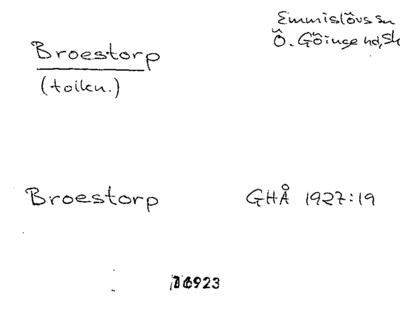 Emmislövs sn
Broestorp
Ö. Göinge hd, Sk
(tolkn.)
Broestorp GHÅ 1927:19
16923